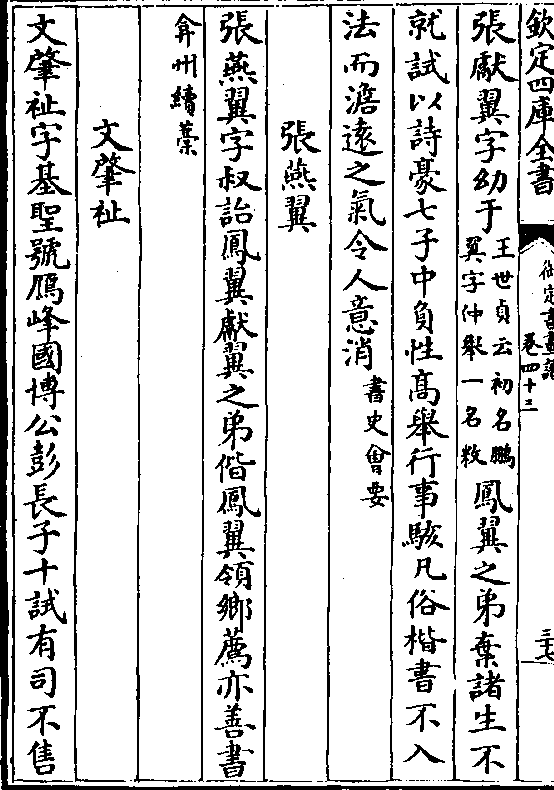 欽定四庫全書
御定書畫譜
卷四十三
三七
張獻翼字幼于王世貞云初名鵬翼字仲舉一名敉鳳翼之弟棄諸生不
就試以詩豪七子中負性高舉行事駭凡俗楷書不入
法而澹遠之氣令人意消書史會要
張燕翼
張燕翼字叔詒鳳翼獻翼之弟偕鳳翼領鄉薦亦善書
弇州續藁
文肇祉
文肇祉字基聖號鴈峰國博公彭長子十試有司不售